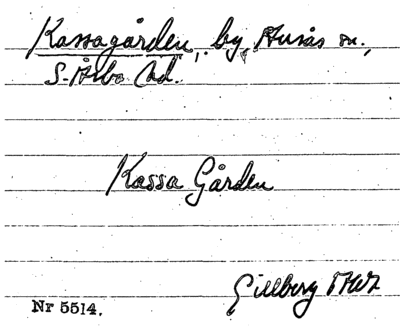 Kassagården, by, Husås sn.,
S. Åsbo hd.
Kassa Gården
Gillberg
Nr 5514.